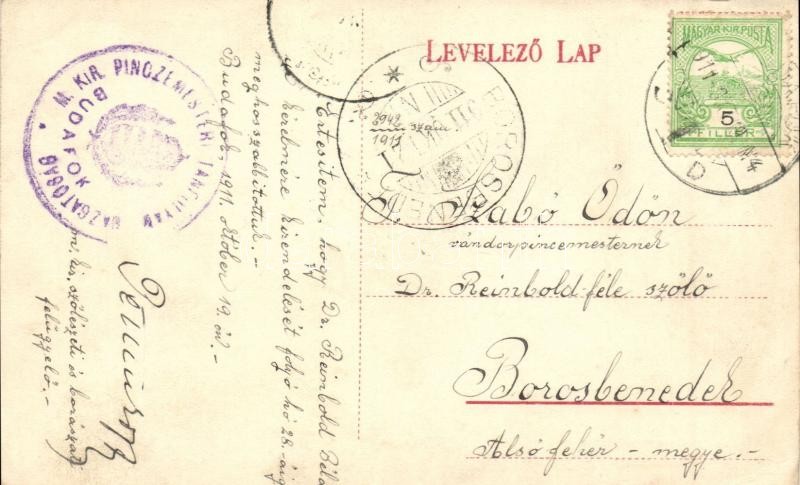 LEVELEZŐ LAP
MAGYAR KIR. POSTA
5
FILLÉR
M. KIR. PINCZEMESTERI TANFOLYAM
IGAZGATÓSÁG
BUDAFOK
2942 szám
1911
Szabó Ödön
vándorpincemesternek
Dr. Reinbold-féle szőlő
Borosbenedek
Alsófehér - megye.-
Értesitem, hogy Dr. Reinbold Béla
kérelmére kirendelését folyó hó 28.-áig
meghosszabbitottuk.-
Budafok, 1911. október 19.én.-
m. kir. szőlészeti és borászati
felügyelő.-